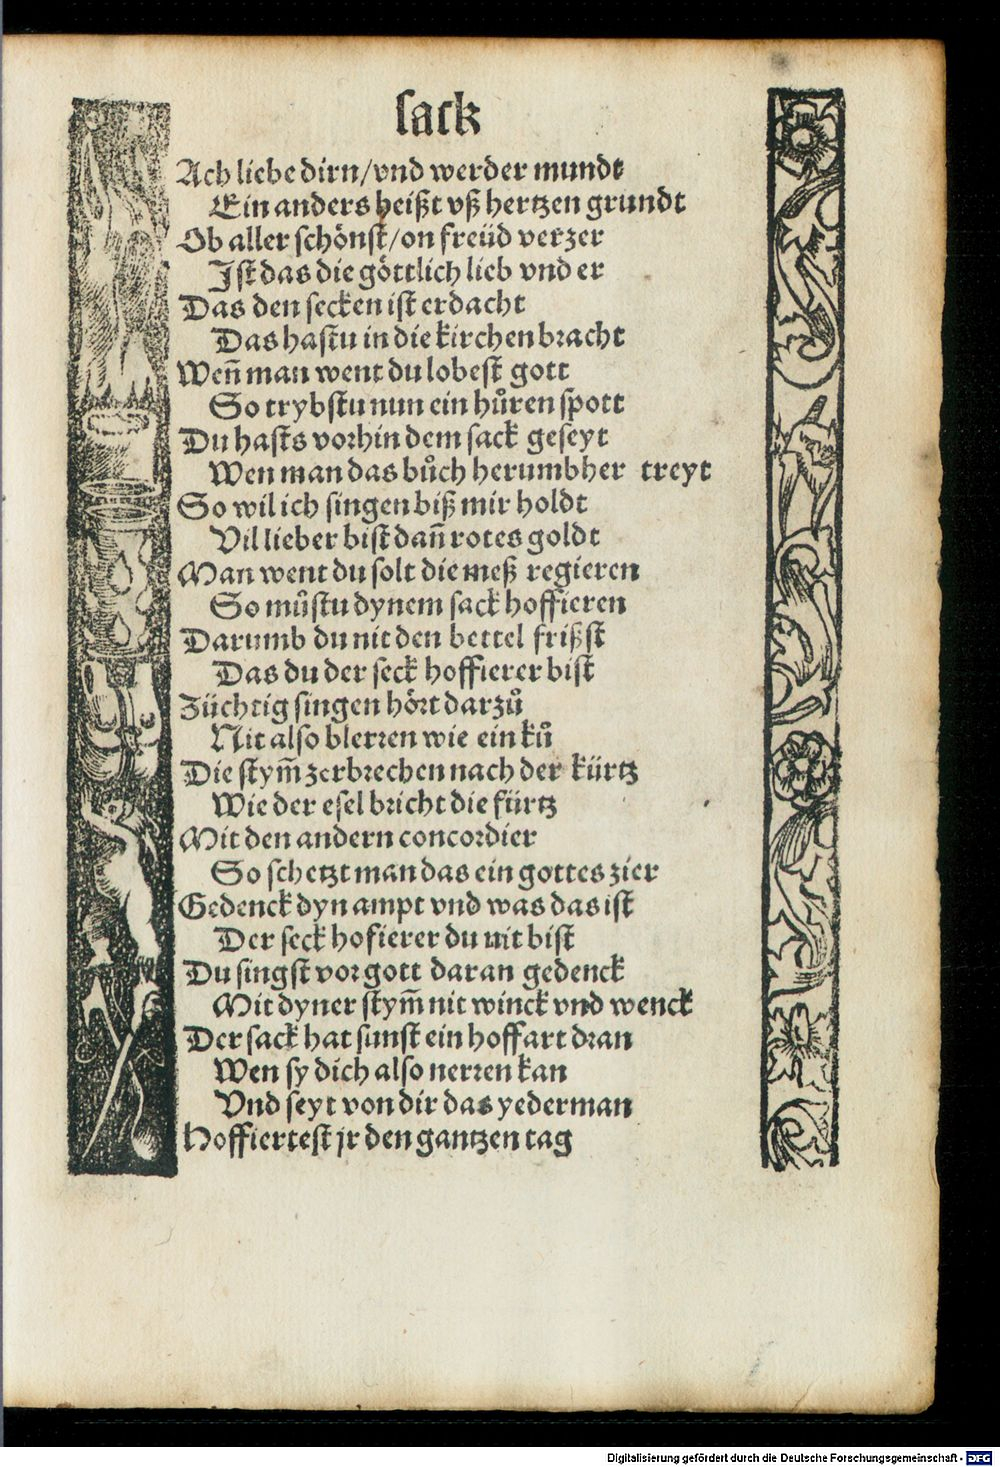 sack
Ach liebe dirn/vnd werder mundt
Ein anders heißt vß hertzen grundt
Ob aller schönst/on freüd verzer
Jst das die göttlich lieb vnd er
Das den secken ist erdacht
Das hastu in die kirchen bracht
Wen̄ man went du lobest gott
So trybstu nun ein hůren spott
Du hasts vorhin dem sack geseyt
Wen man das bůch herumbher treyt
So wil ich singen biß mir holdt
Vil lieber bist dan̄ rotes goldt
Man went du solt die meß regieren
So můstu dynem sack hoffieren
Darumb du nit den bettel frißst
Das du der seck hoffierer bist
Züchtig singen hört darzů
Nit also blerren wie ein ků
Die stym̄ zerbrechen nach der kürtz
Wie der esel bricht die fürtz
Mit den andern concordier
So schetzt man das ein gottes zier
Gedenck dyn ampt vnd was das ist
Der seck hofierer du nit bist
Du singst vor gott daran gedenck
Mit dyner stym̄ nit winck vnd wenck
Der sack hat sunst ein hoffart dran
Wen sy dich also nerren kan
Vnd seyt von dir das yederman
Hoffiertest jr den gantzen tag
Digitalisierung gefördert durch die Deutsche Forschungsgemeinschaft - DFG